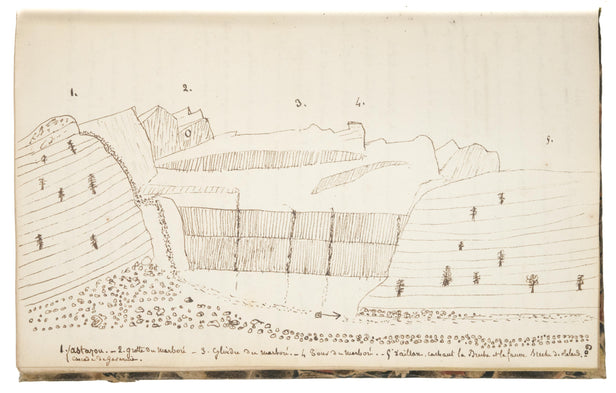 1.
2.
3.
4.
5.
1. Astazou. — 2. grotte du marboré — 3. Cylindre du marboré. — 4 Tour du marboré. — 5 Taillon. cachant la Brèche et la fausse Brèche de Roland.